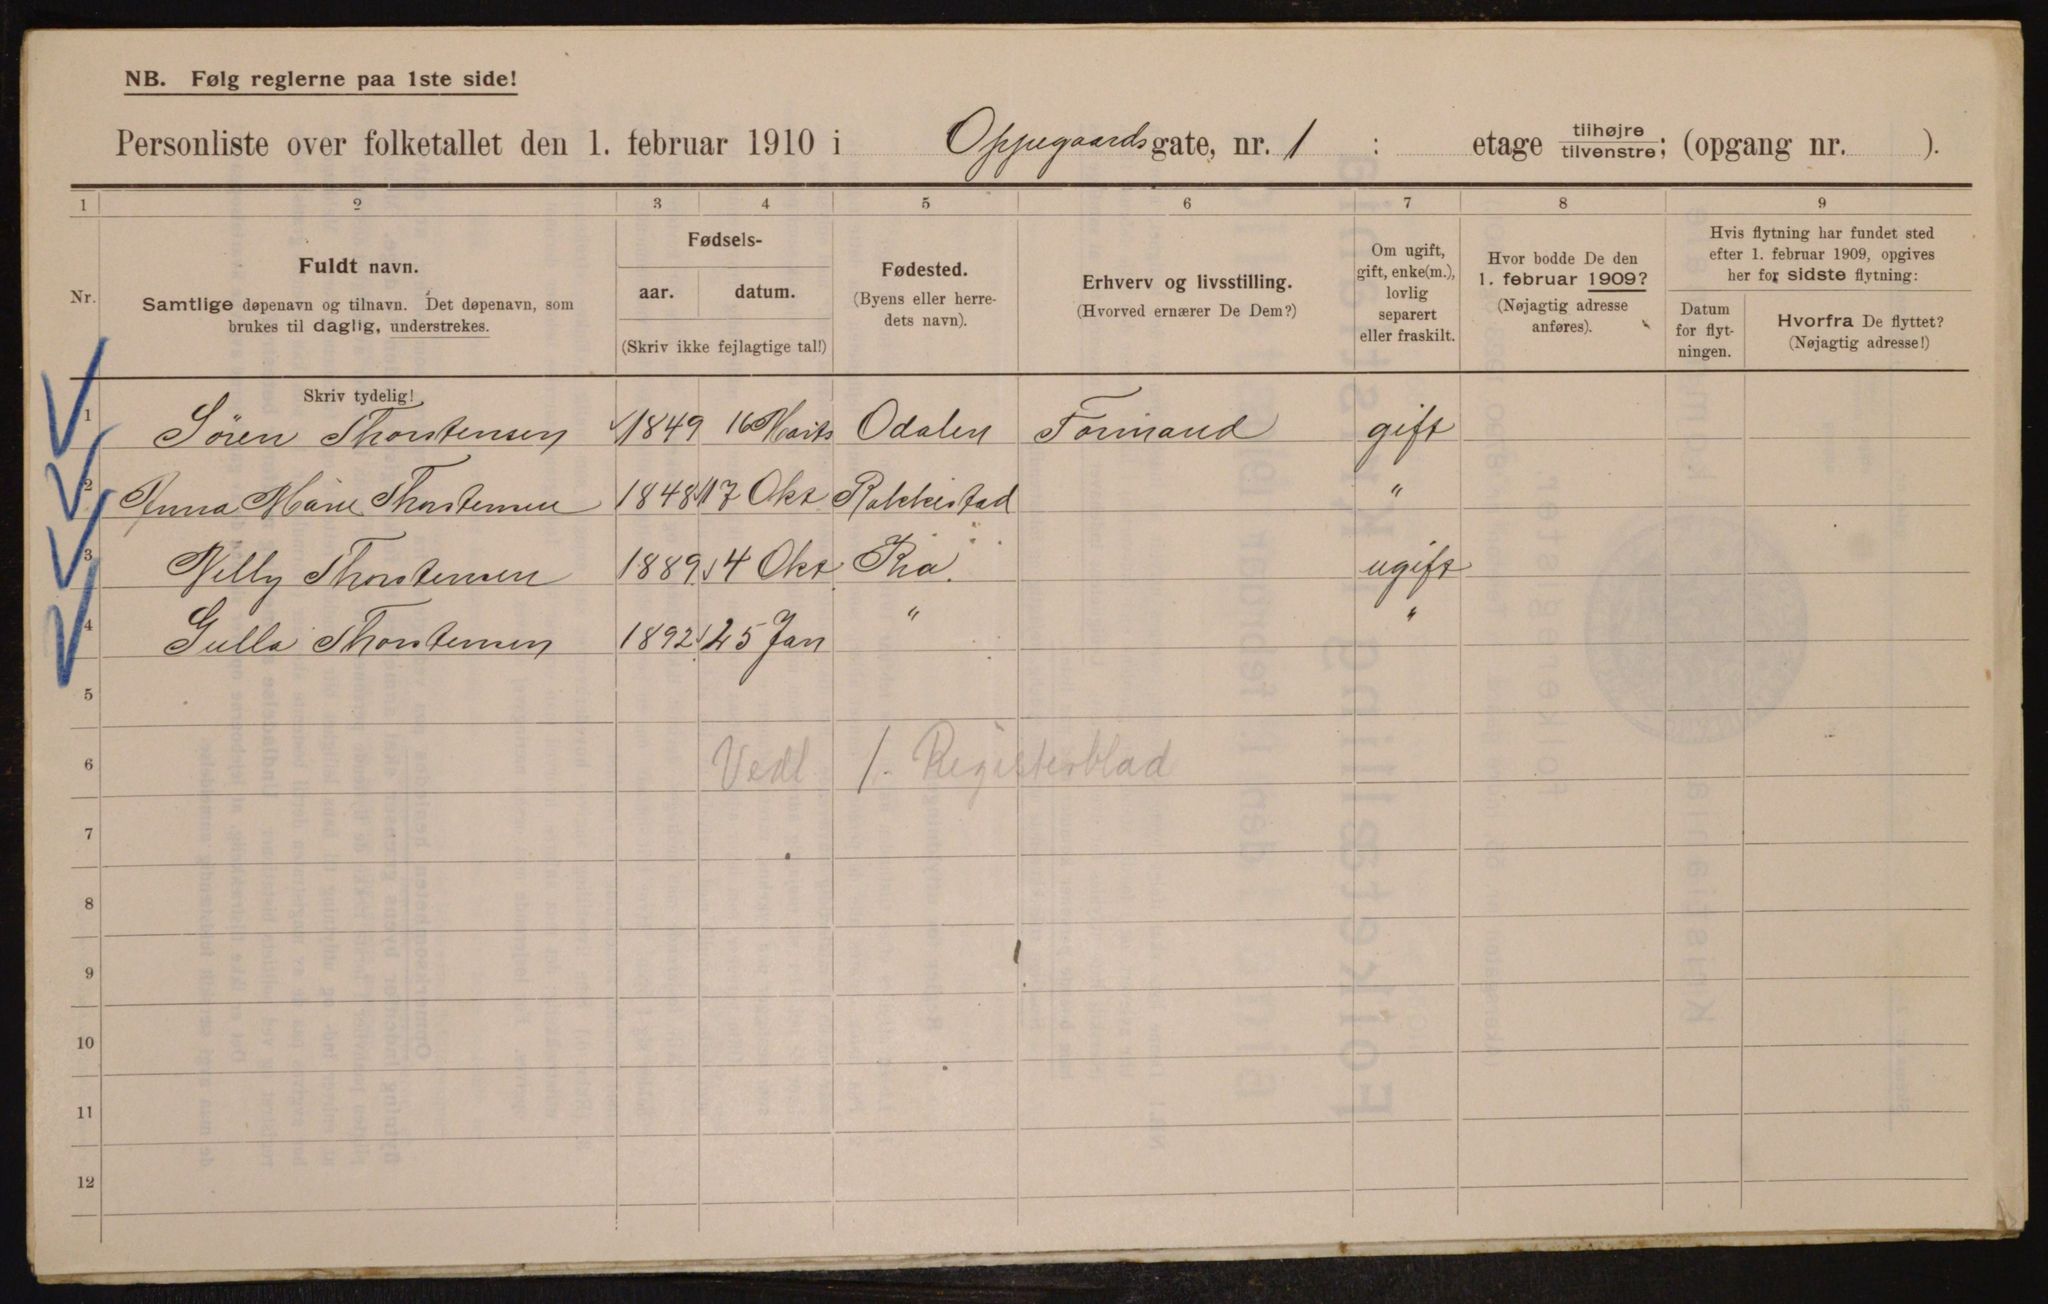 NB. Følg reglerne paa 1ste side!
Personliste over folketallet den 1. februar 1910 i Oppegaardsgate, nr. 1 : etage tilhøjre/tilvenstre; (opgang nr. ).
1 2 3 4 5 6 7 8 9
Nr.
Fuldt navn.
Samtlige døpenavn og tilnavn. Det døpenavn, som
brukes til daglig, understrekes.
Fødsels-
aar. datum.
(Skriv ikke fejlagtige tal!)
Fødested.
(Byens eller herre-
dets navn).
Erhverv og livsstilling.
(Hvorved ernærer De Dem?)
Om ugift,
gift, enke(m.),
lovlig
separert
eller fraskilt.
Hvor bodde De den
1. februar 1909?
(Nøjagtig adresse
anføres).
Hvis flytning har fundet sted
efter 1. februar 1909, opgives
her for sidste flytning:
Datum
for flyt-
ningen.
Hvorfra De flyttet?
(Nøjagtig adresse!)
Skriv tydelig!
1 Sören Thorstensen 1849 16 Marts Odalen Formand gift
2 Anna Marie Thorstensen 1848 17 Okt Rakkestad "
3 Nelly Thorstensen 1889 4 Okt Kra. ugift
4 Gulla Thorstensen 1892 25 Jan " "
5
6 Vedl 1. Registerblad
7
8
9
10
11
12